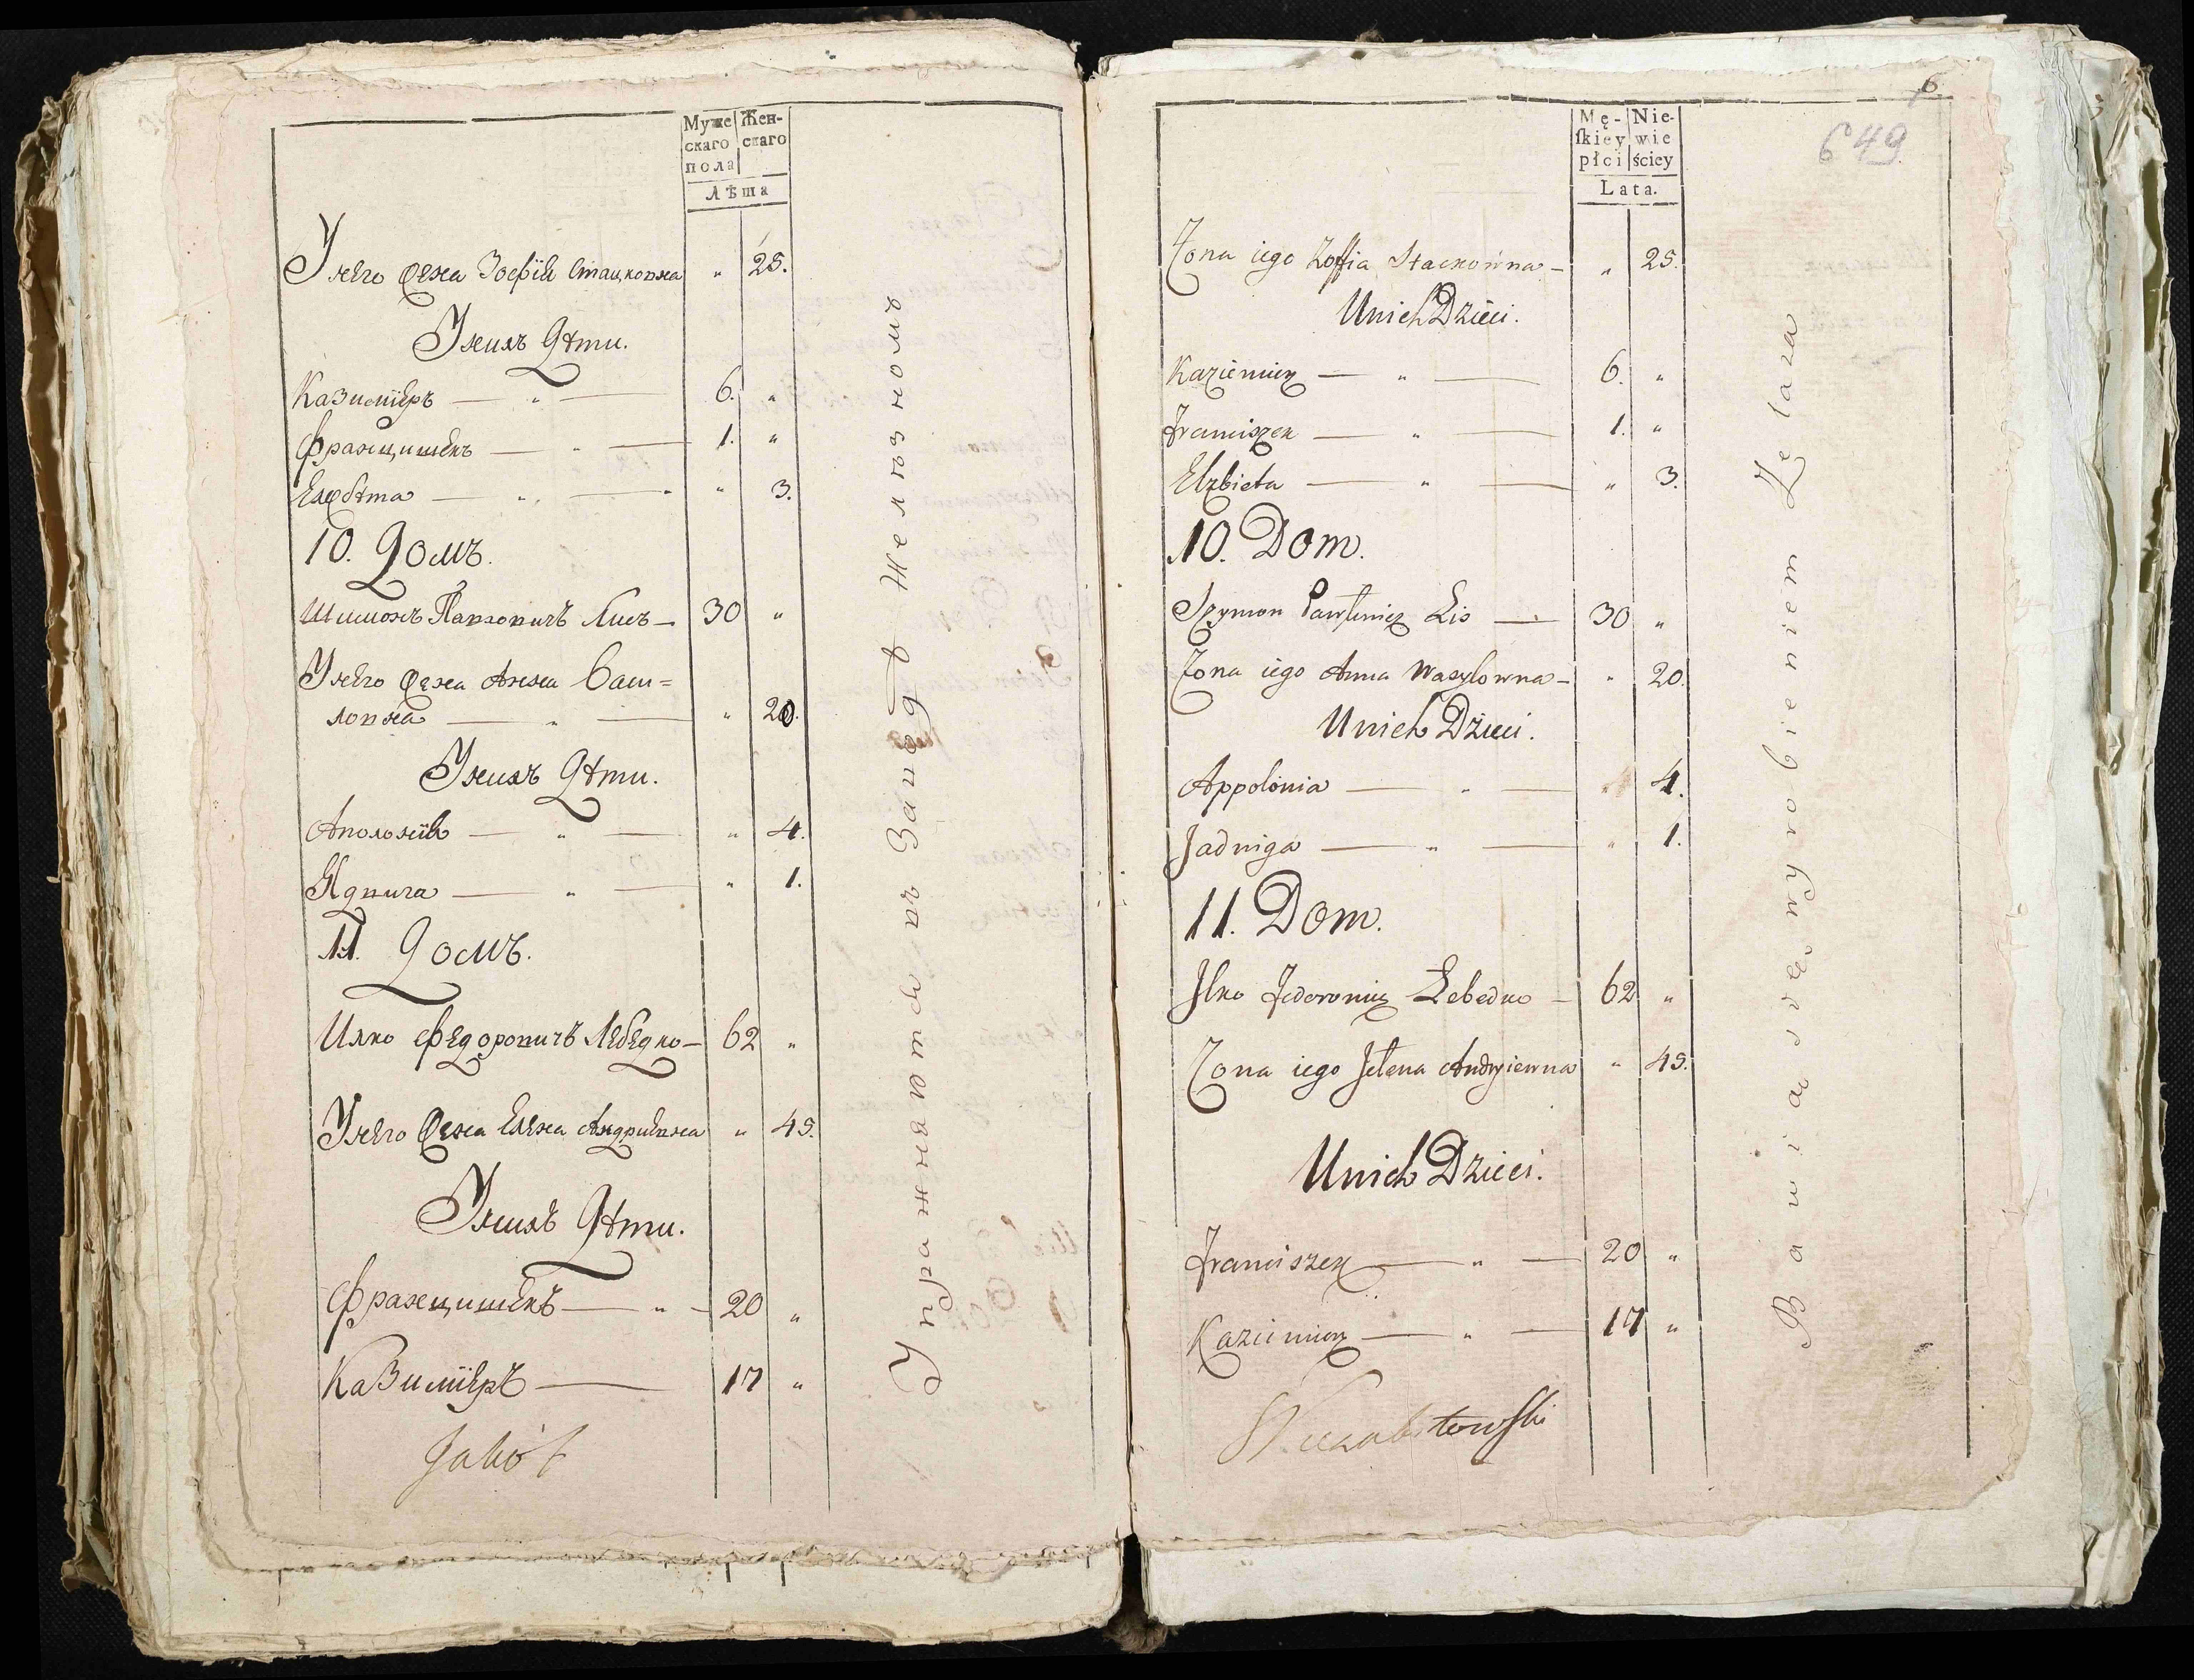 Муже
скаго
пола
Жен-
скаго
Лѣта
Унего Жена Зофїя Стацковна " 25.
Унихъ Дѣти.
Казимїеръ — " — 6. "
Францишекъ — " — 1. "
Елжбѣта — " — " 3.
10. Домъ.
Шимонъ Павловичъ Лисъ — 30 "
Унего Жена Анна Васи=
ловна — " — " 20.
Унихъ Дѣти.
Аполонїя — " — " 4.
Ядвига — " — " 1.
11. Домъ.
Илко Федоровичъ Лебедко — 62 "
Унего Жена Елена Андриевна " 45.
Унихъ Дѣти.
Францишекъ — " — 20 "
Казимїеръ — 17 "
Упражняются въ Заводѣ Желѣзномъ
Jakób
6.
649
Mę-
ſkiey
płci
Nie-
wie
ściey
Lata.
Zona iego Zoffia Stackowna — " 25.
Unich Dzieci.
Kazimierz — " — 6. "
Franciszek — " — 1. "
Elzbieta — " — " 3.
10. Dom.
Szymon Pawłowicz Lis — 30 "
Zona iego Anna Wasylowna — " 20.
Unich Dzieci.
Appolonia — " — " 4.
Jadwiga — " — " 1.
11. Dom.
Ilko Fedorowicz Lebedko — 62 "
Zona iego Jelena Andryiewna " 45.
Unich Dzieci.
Franciszek — " — 20 "
Kazimierz — " — 17 "
Bawią się wyrobieniem Zelaza